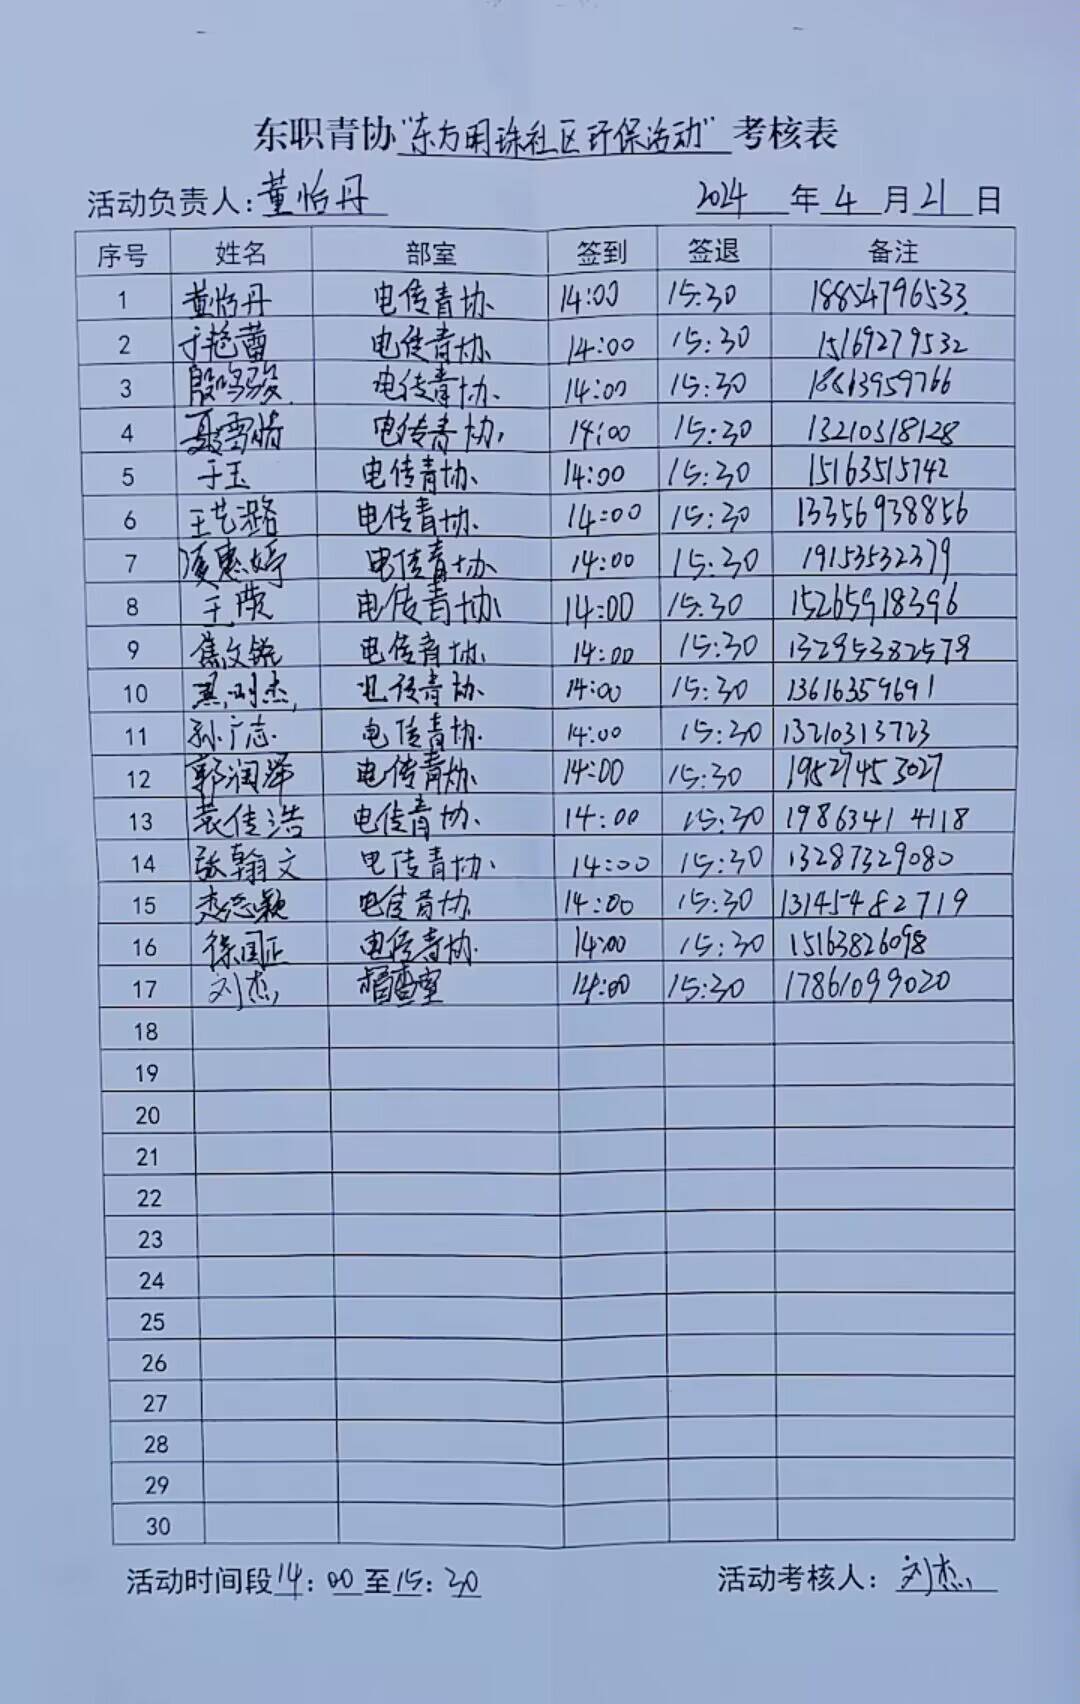 东职青协“东方明珠社区环保活动”考核表
活动负责人:董怡丹 2024年4月21日
序号 姓名 部室 签到 签退 备注
1 董怡丹 电传青协 14:00 15:30 18854796533
2 于艳蕾 电传青协 14:00 15:30 15169279532
3 殷鸣骏 电传青协 14:00 15:30 18613959766
4 聂雪倩 电传青协 14:00 15:30 13210318128
5 于玉 电传青协 14:00 15:30 15163515742
6 王艺潞 电传青协 14:00 15:30 13356938856
7 凌惠婷 电传青协 14:00 15:30 19153532379
8 电传青协 14:00 15:30 15265918396
9 焦文锐 电传青协 14:00 15:30 13295382579
10 电传青协 14:00 15:30 13616359691
11 孙广志 电传青协 14:00 15:30 13210313723
12 郭润泽 电传青协 14:00 15:30 19527453027
13 袁传浩 电传青协 14:00 15:30 19863414118
14 张翰文 电传青协 14:00 15:30 13287329080
15 电传青协 14:00 15:30 13145482719
16 徐国正 电传青协 14:00 15:30 15163826098
17 刘杰 督查室 14:00 15:30 17861099020
18
19
20
21
22
23
24
25
26
27
28
29
30
活动时间段14:00至15:30 活动考核人:刘杰